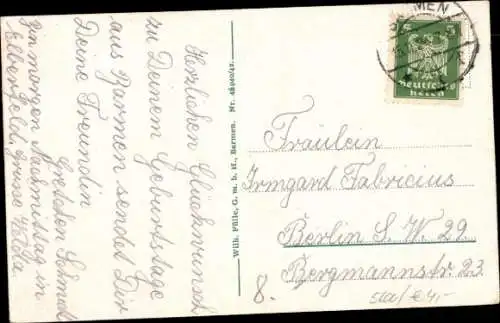 Herzlichen Glückwunsch
zu Deinem Geburtstage
aus Barmen sendet Dir
Deine Freundin
Gretchen Schmidt
Bin morgen Nachmittag in
Elberfeld. Gruss
Wilh. Fülle, G. m. b. H., Barmen. Nr.
MEN
5
5
Deutsches
Reich
Fräulein
Irmgard Fabricius
Berlin S. W. 29
Bergmannstr. 23.
8.